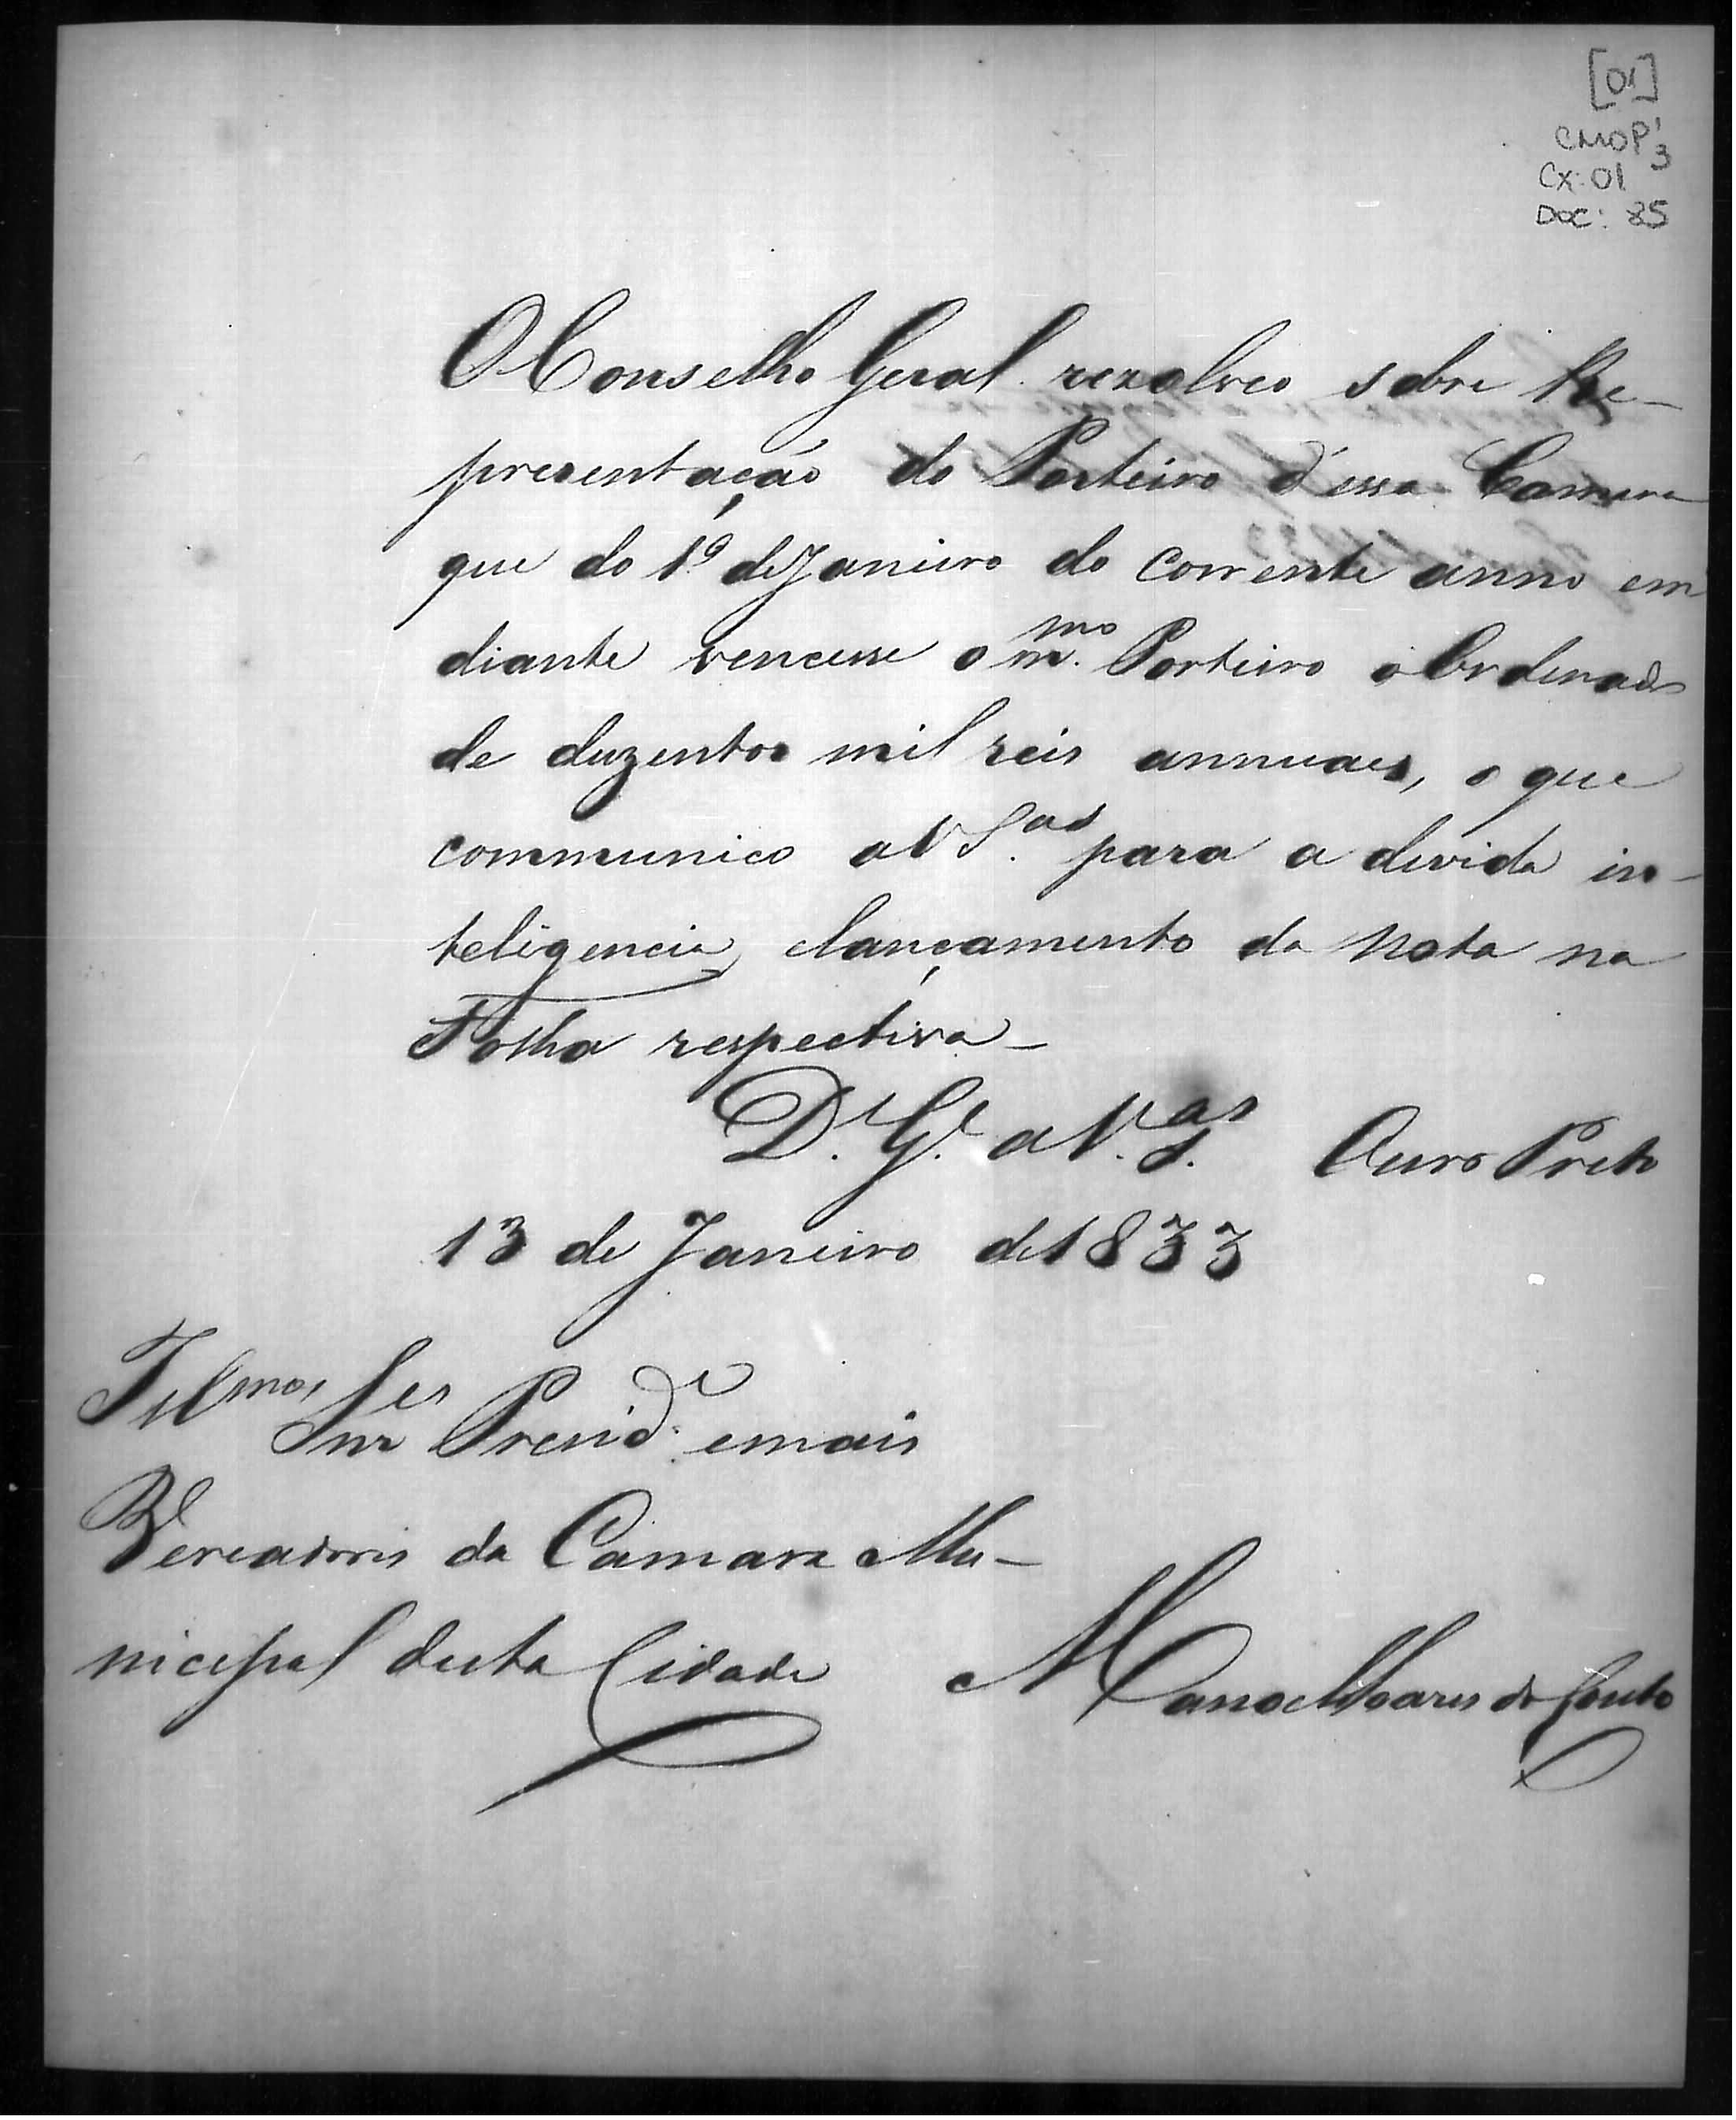 [01]
CMOP 1/3
CX: 01
DOC: 85
O Conselho Geral rezolveo sobre Re-
presentação do Porteiro d'essa Camara
que do 1º de Janeiro do corrente anno em
diante vencesse o m.mo Porteiro o Ordenado
de duzentos mil reis annuaes, o que
communico a V S.as para a devida in-
teligencia, e lançamento da Nota na
Folha respectiva_
D.s G.e a V. S.as Ouro Preto
13 de Janeiro de 1833
Illmos Snr.es Presid.e e mais
Vereadores da Camara Mu-
nicipal desta Cidade
Manoel Soares do Couto